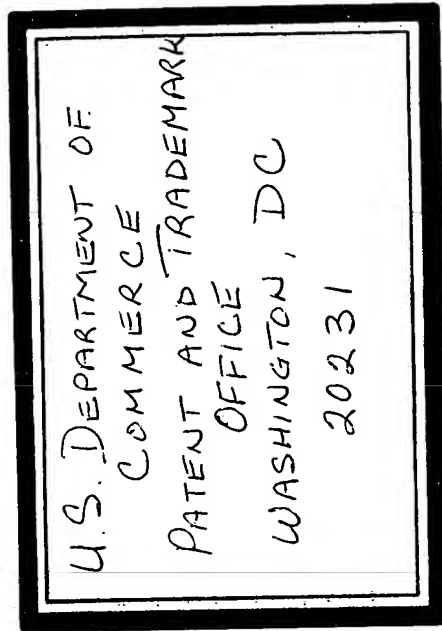 U.S. DEPARTMENT OF
COMMERCE
PATENT AND TRADEMARK
OFFICE
WASHINGTON, DC
20231